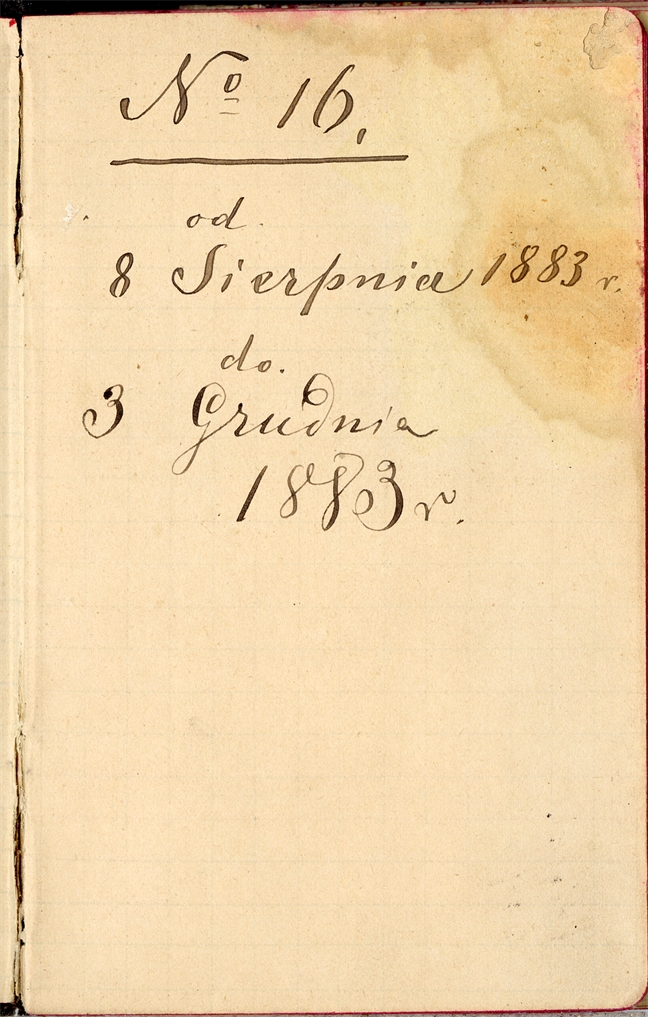 No 16.
od.
8 Sierpnia 1883 r.
do.
3 Grudnia
1883 r.